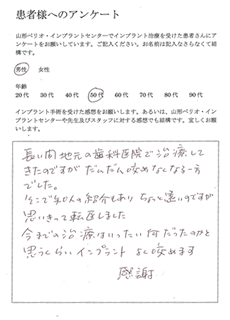 患者様へのアンケート
山形ペリオ・インプラントセンターでインプラント治療を受けた患者さんにア
ンケートをお願いしています。ご記入ください。お名前は記入なさらなくて結
構です。
男性 女性
年齢
20代 30代 40代 50代 60代 70代 80代 90代
インプラント手術を受けた感想をお願いします。あるいは、山形ペリオ・イン
プラントセンターや先生及びスタッフに対する感想でも結構です。宜しくお願
いします。
長い間地元の歯科医院で治療して
きたのですがだんだん咬めなくなる一方
でした。
そこで知人の紹介もあり ちょっと遠いのですが
思いきって転医しました
今までの治療はいったい何だったのかと
思うくらい インプラント よく咬めます
感謝